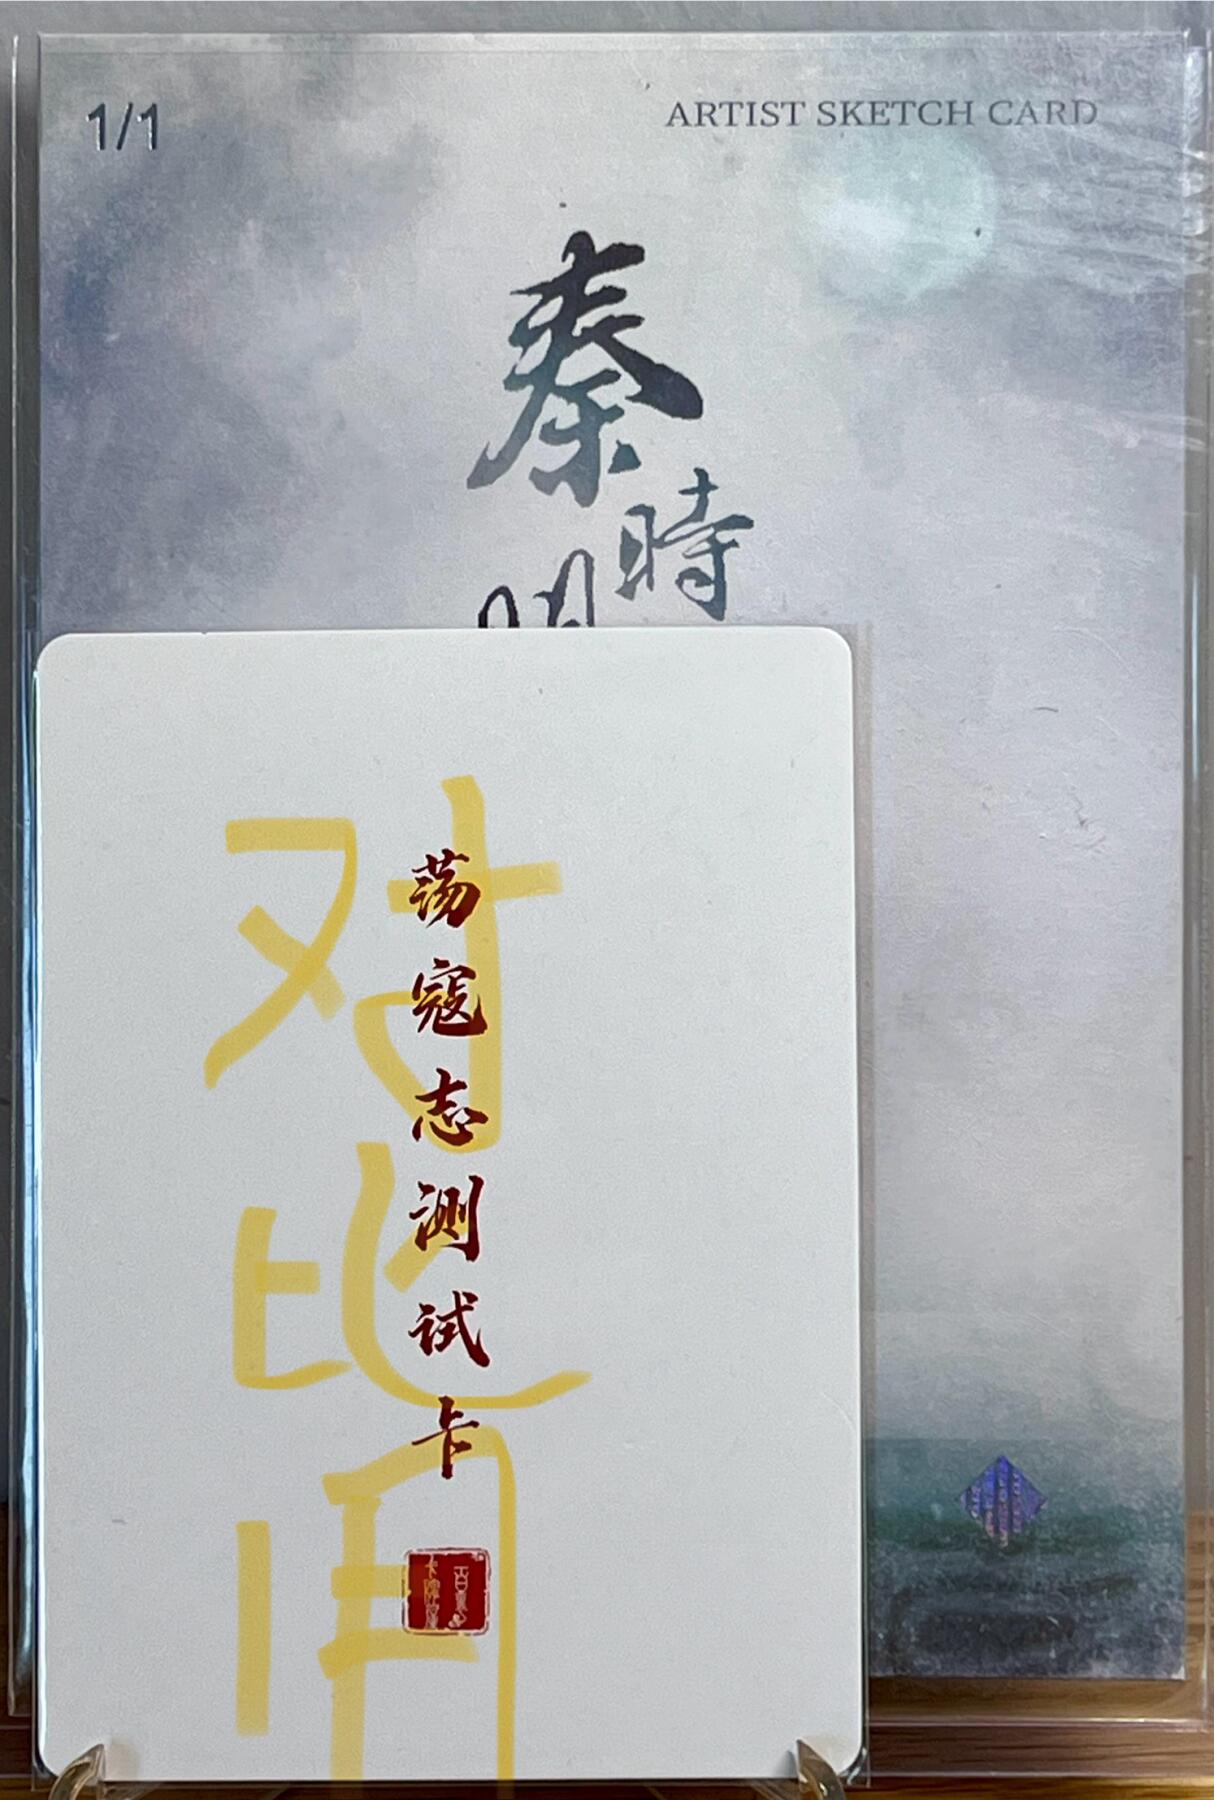 1/1
ARTIST SKETCH CARD
秦
時
荡寇志测试卡
对比用